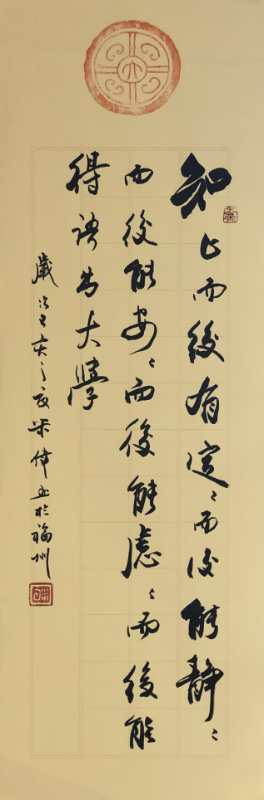 知止而後有定々而後能靜々
而後能安々而後能慮々而後能
得語大學
歲次己亥之夏偉於福州